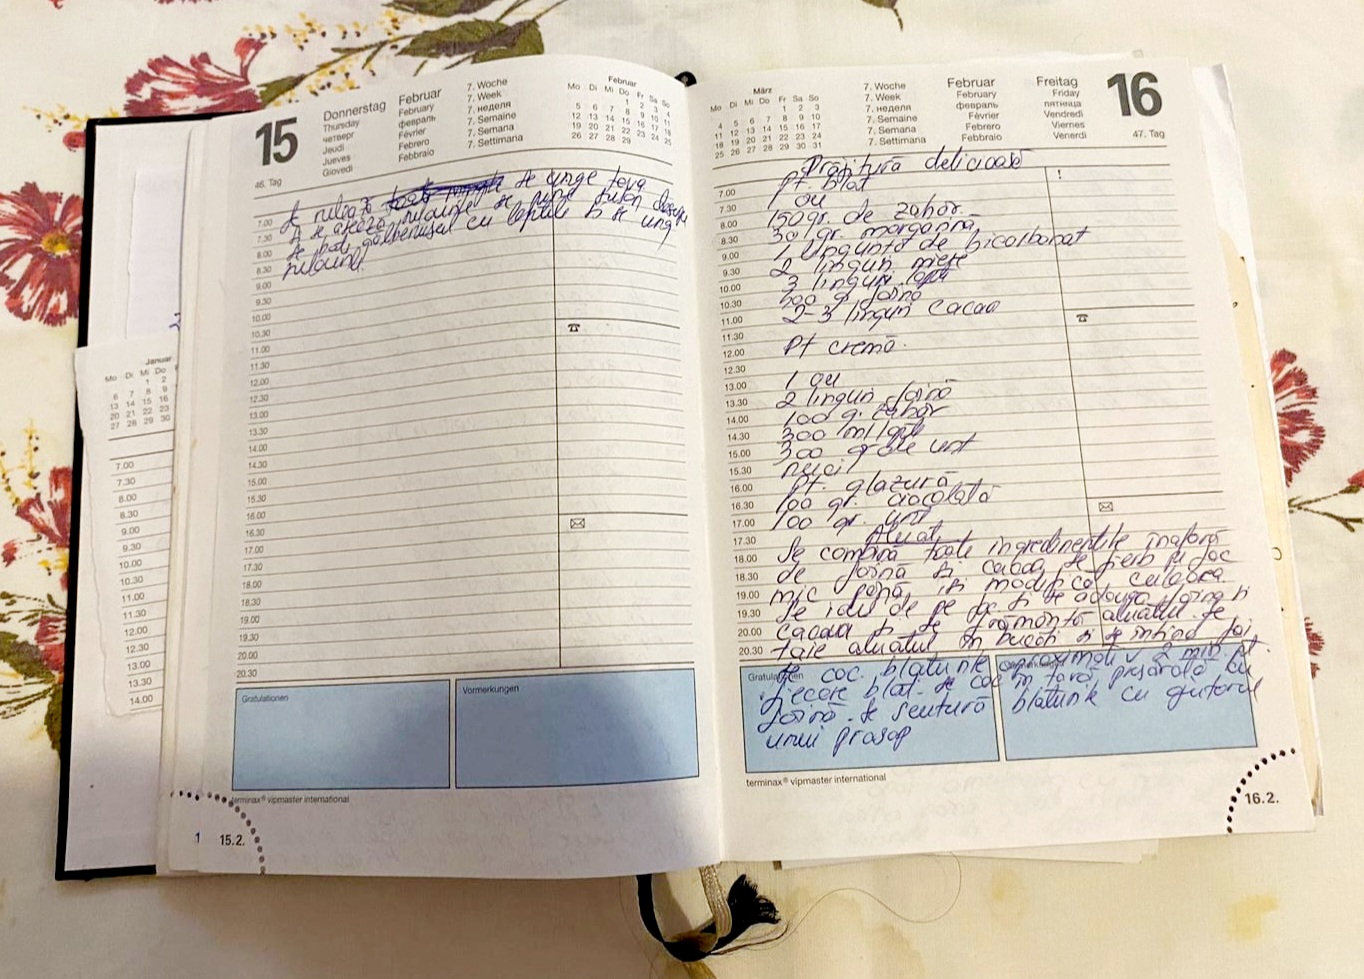 15
Donnerstag
Thursday
четверг
Jeudi
Jueves
Giovedi
Februar
February
февраль
Février
Febrero
Febbraio
7. Woche
7. Week
7. неделя
7. Semaine
7. Semana
7. Settimana
Februar
Mo Di Mi Do Fr Sa So
1 2 3 4
5 6 7 8 9 10 11
12 13 14 15 16 17 18
19 20 21 22 23 24 25
26 27 28 29
46. Tag
se unge tava
și se așează rulourile se pune
se bat gălbenușul cu laptele și se ung
rulourile.
7.00
7.30
8.00
8.30
9.00
9.30
10.00
10.30
11.00
11.30
12.00
12.30
13.00
13.30
14.00
14.30
15.00
15.30
16.00
16.30
17.00
17.30
18.00
18.30
19.00
19.30
20.00
20.30
Gratulationen
Vormerkungen
terminax® vipmaster international
1 15.2.
Januar
Mo Di Mi Do
1 2
6 7 8 9
13 14 15 16
20 21 22 23
27 28 29 30
7.00
7.30
8.00
8.30
9.00
9.30
10.00
10.30
11.00
11.30
12.00
12.30
13.00
13.30
14.00
März
Mo Di Mi Do Fr Sa So
1 2 3
4 5 6 7 8 9 10
11 12 13 14 15 16 17
18 19 20 21 22 23 24
25 26 27 28 29 30 31
7. Woche
7. Week
7. неделя
7. Semaine
7. Semana
7. Settimana
Februar
February
февраль
Février
Febrero
Febbraio
Freitag
Friday
пятница
Vendredi
Viernes
Venerdi
16
47. Tag
Prăjitură delicioasă
pt. blat
1 ou
150 gr. de zahăr
30 gr. margarină
1 linguriță de bicarbonat
2 linguri miere
3 linguri lapte
500 g făină
2-3 linguri cacao
Pt cremă.
1 ou
2 linguri făină
100 g. zahăr
300 ml lapte
300 g de unt
nuci
pt. glazură
100 gr. ciocolată
100 gr. unt
Aluat
Se combină toate ingredientele înafară
de făină și cacao, se fierb pe foc
mic până își modifică culoarea
se iau de pe foc și se adauga făina și
cacaua și se frământă aluatul. Se
taie aluatul în bucăți și se întind foi
se coc blaturile aproximativ 2 min. pt.
fiecare blat. se coc în tavă presărată cu
făină. se scutură blaturile cu ajutorul
unui prosop
7.00
7.30
8.00
8.30
9.00
9.30
10.00
10.30
11.00
11.30
12.00
12.30
13.00
13.30
14.00
14.30
15.00
15.30
16.00
16.30
17.00
17.30
18.00
18.30
19.00
19.30
20.00
20.30
!
terminax® vipmaster international
16.2.